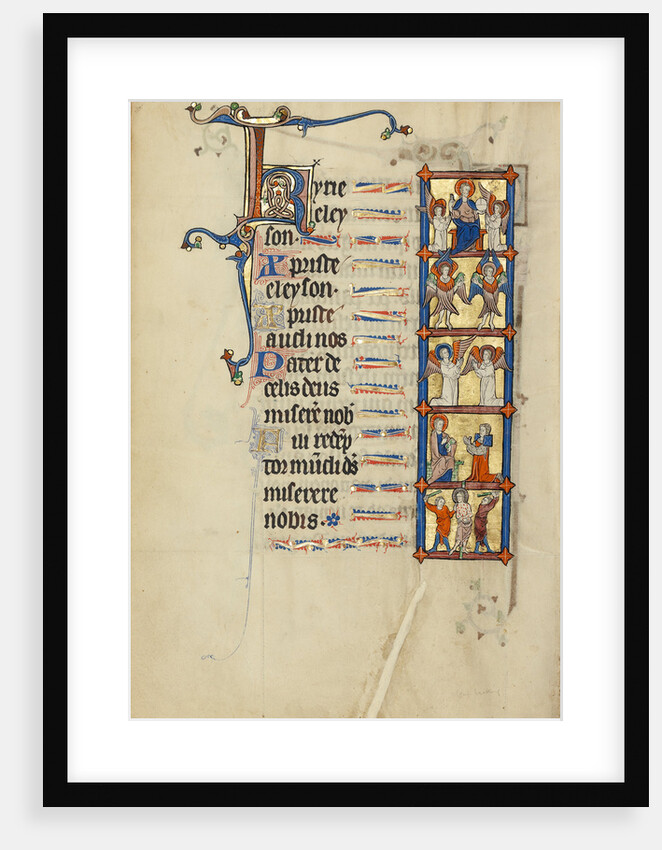 Kyrie
eley
son.
Xpriste
eleyson.
Xpriste
audi nos
Pater de
celis deus
miserẽ nob̃
Fili redẽp
tor mũdi ds̃
miserere
nobis.